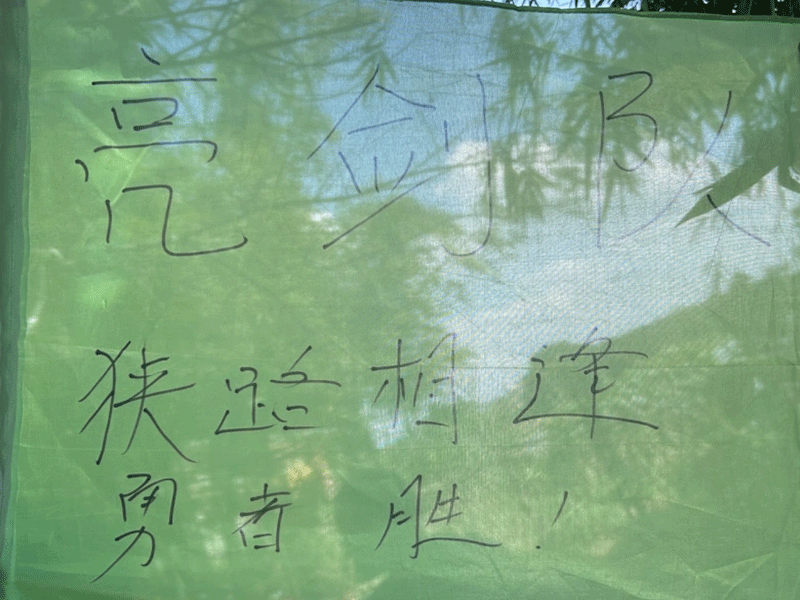 亮剑队
狭路相逢
勇者胜!